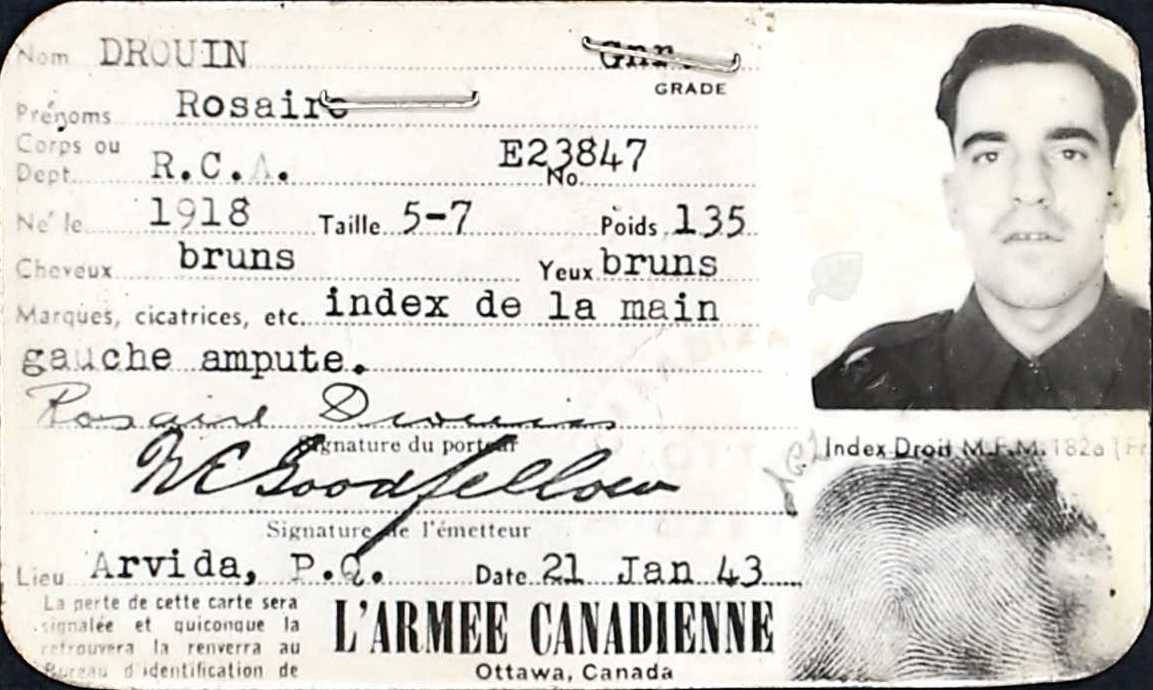 Nom DROUIN Gnr.
GRADE
Prénoms Rosaire
Corps ou
Dept. R.C.A. E23847
No.
Né le 1918 Taille 5-7 Poids 135
Cheveux bruns Yeux bruns
Marques, cicatrices, etc. index de la main
gauche ampute.
Rosaire Drouin
Signature du porteur
Index Droit M.F.M. 182a (Fr
N E Goodfellow
Signature de l'émetteur
Lieu Arvida, P.Q. Date 21 Jan 43
La perte de cette carte sera
signalée et quiconque la
retrouvera la renverra au
Bureau d'identification de
L'ARMEE CANADIENNE
Ottawa, Canada